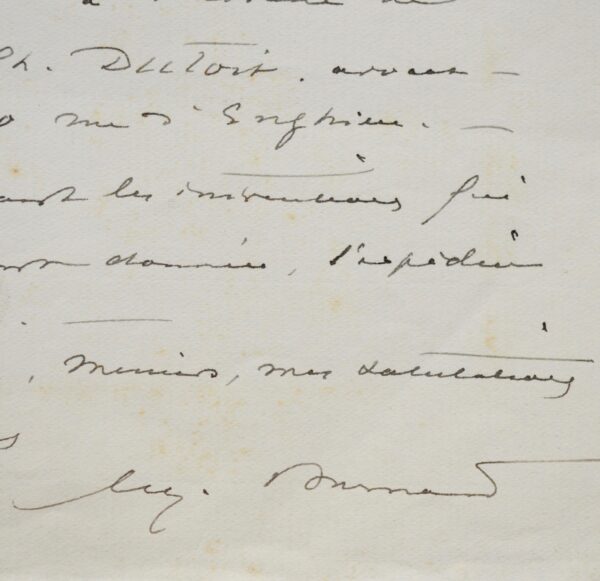 à de
Ch. Dutoit, avocat —
rue d'Enghien. —
les instructions qui
données, l'expédier
, Messieurs, mes salutations
Eug. Burnand